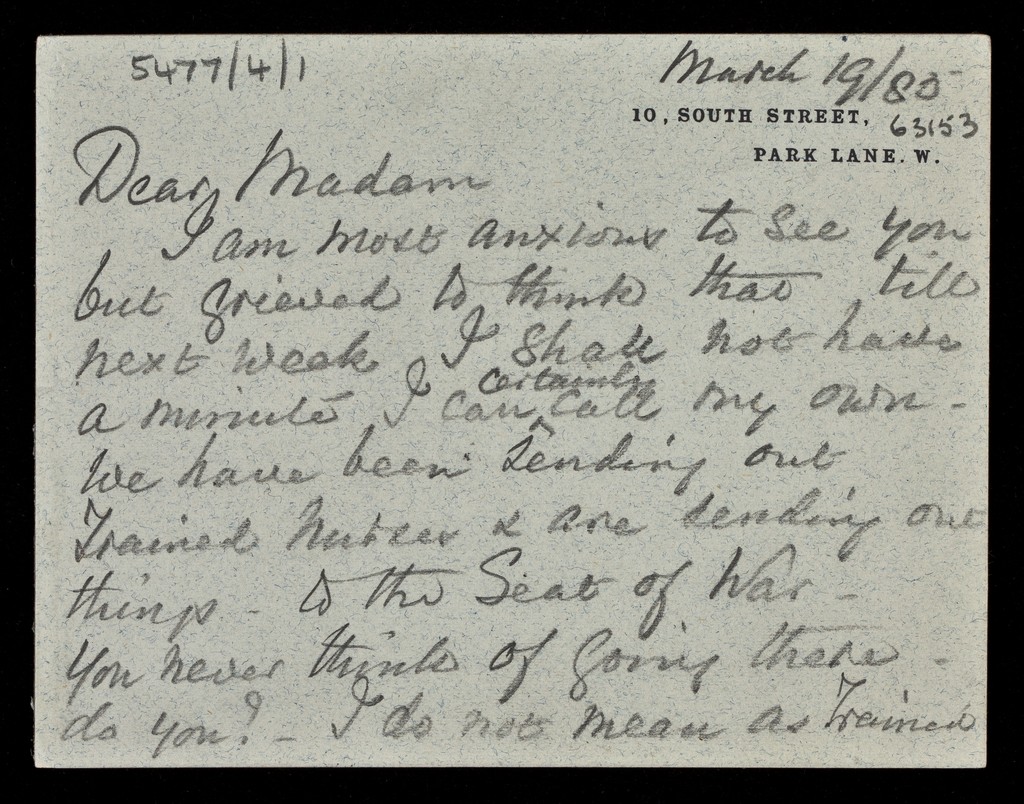 5477/4/1
March 19/85
10, SOUTH STREET,
63153
PARK LANE. W.
Dear Madam
I am most anxious to see you
but grieved to think that till
next week I shall not have
certainly
a minute I can call my own -
We have been sending out
Trained Nurses & are sending out
things - to the Seat of War -
You never think of going there -
do you? - I do not mean as Trained